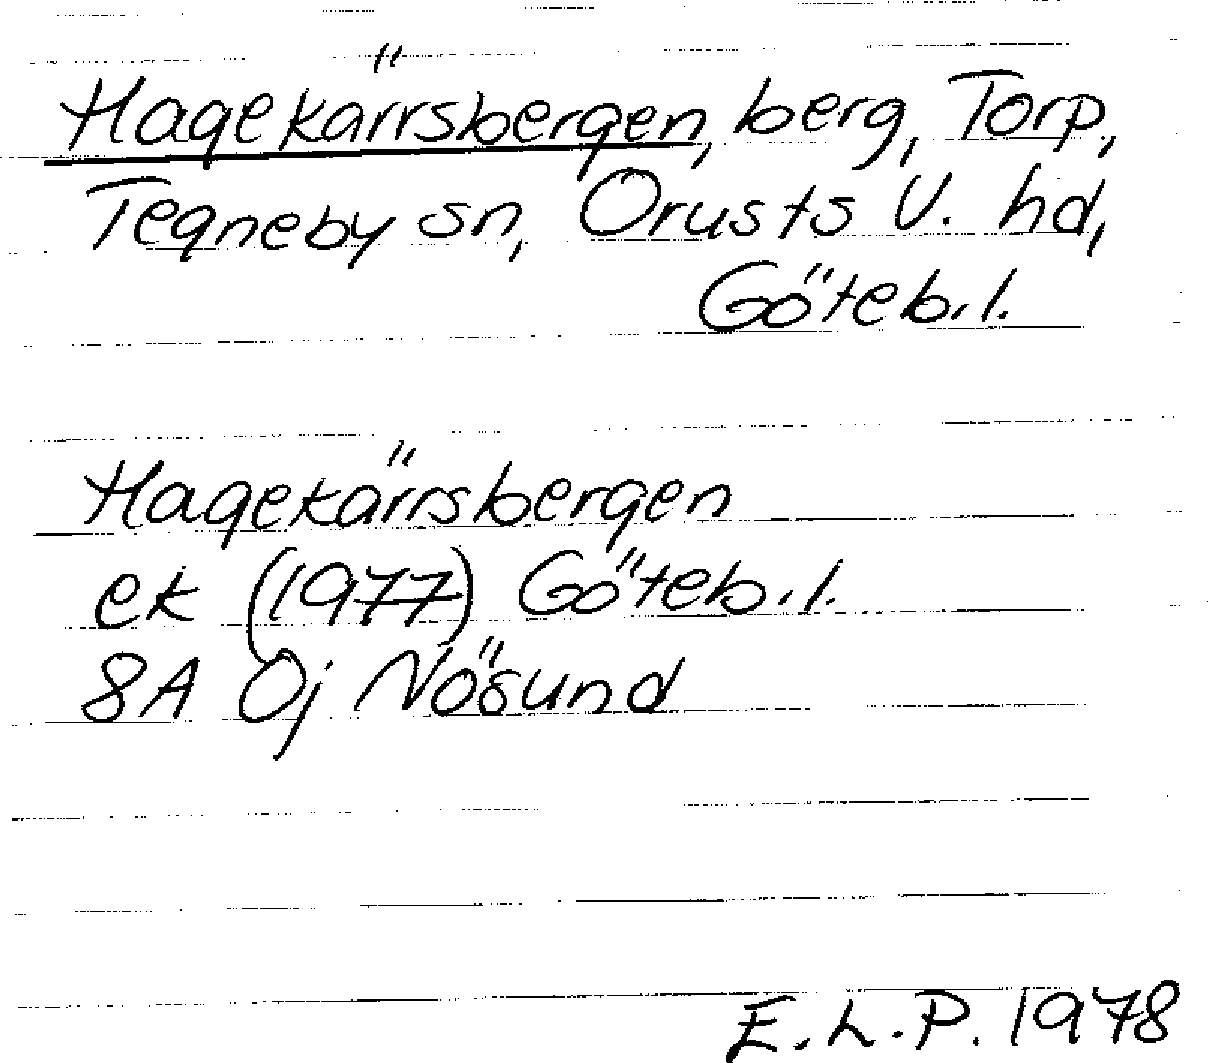 Hagekärrsbergen, berg, Torp,
Tegneby sn, Orusts V. hd,
Göteb.l.
Hagekärrsbergen
ek (1977) Göteb.l.
8A 0j Nösund
E.L.P. 1978